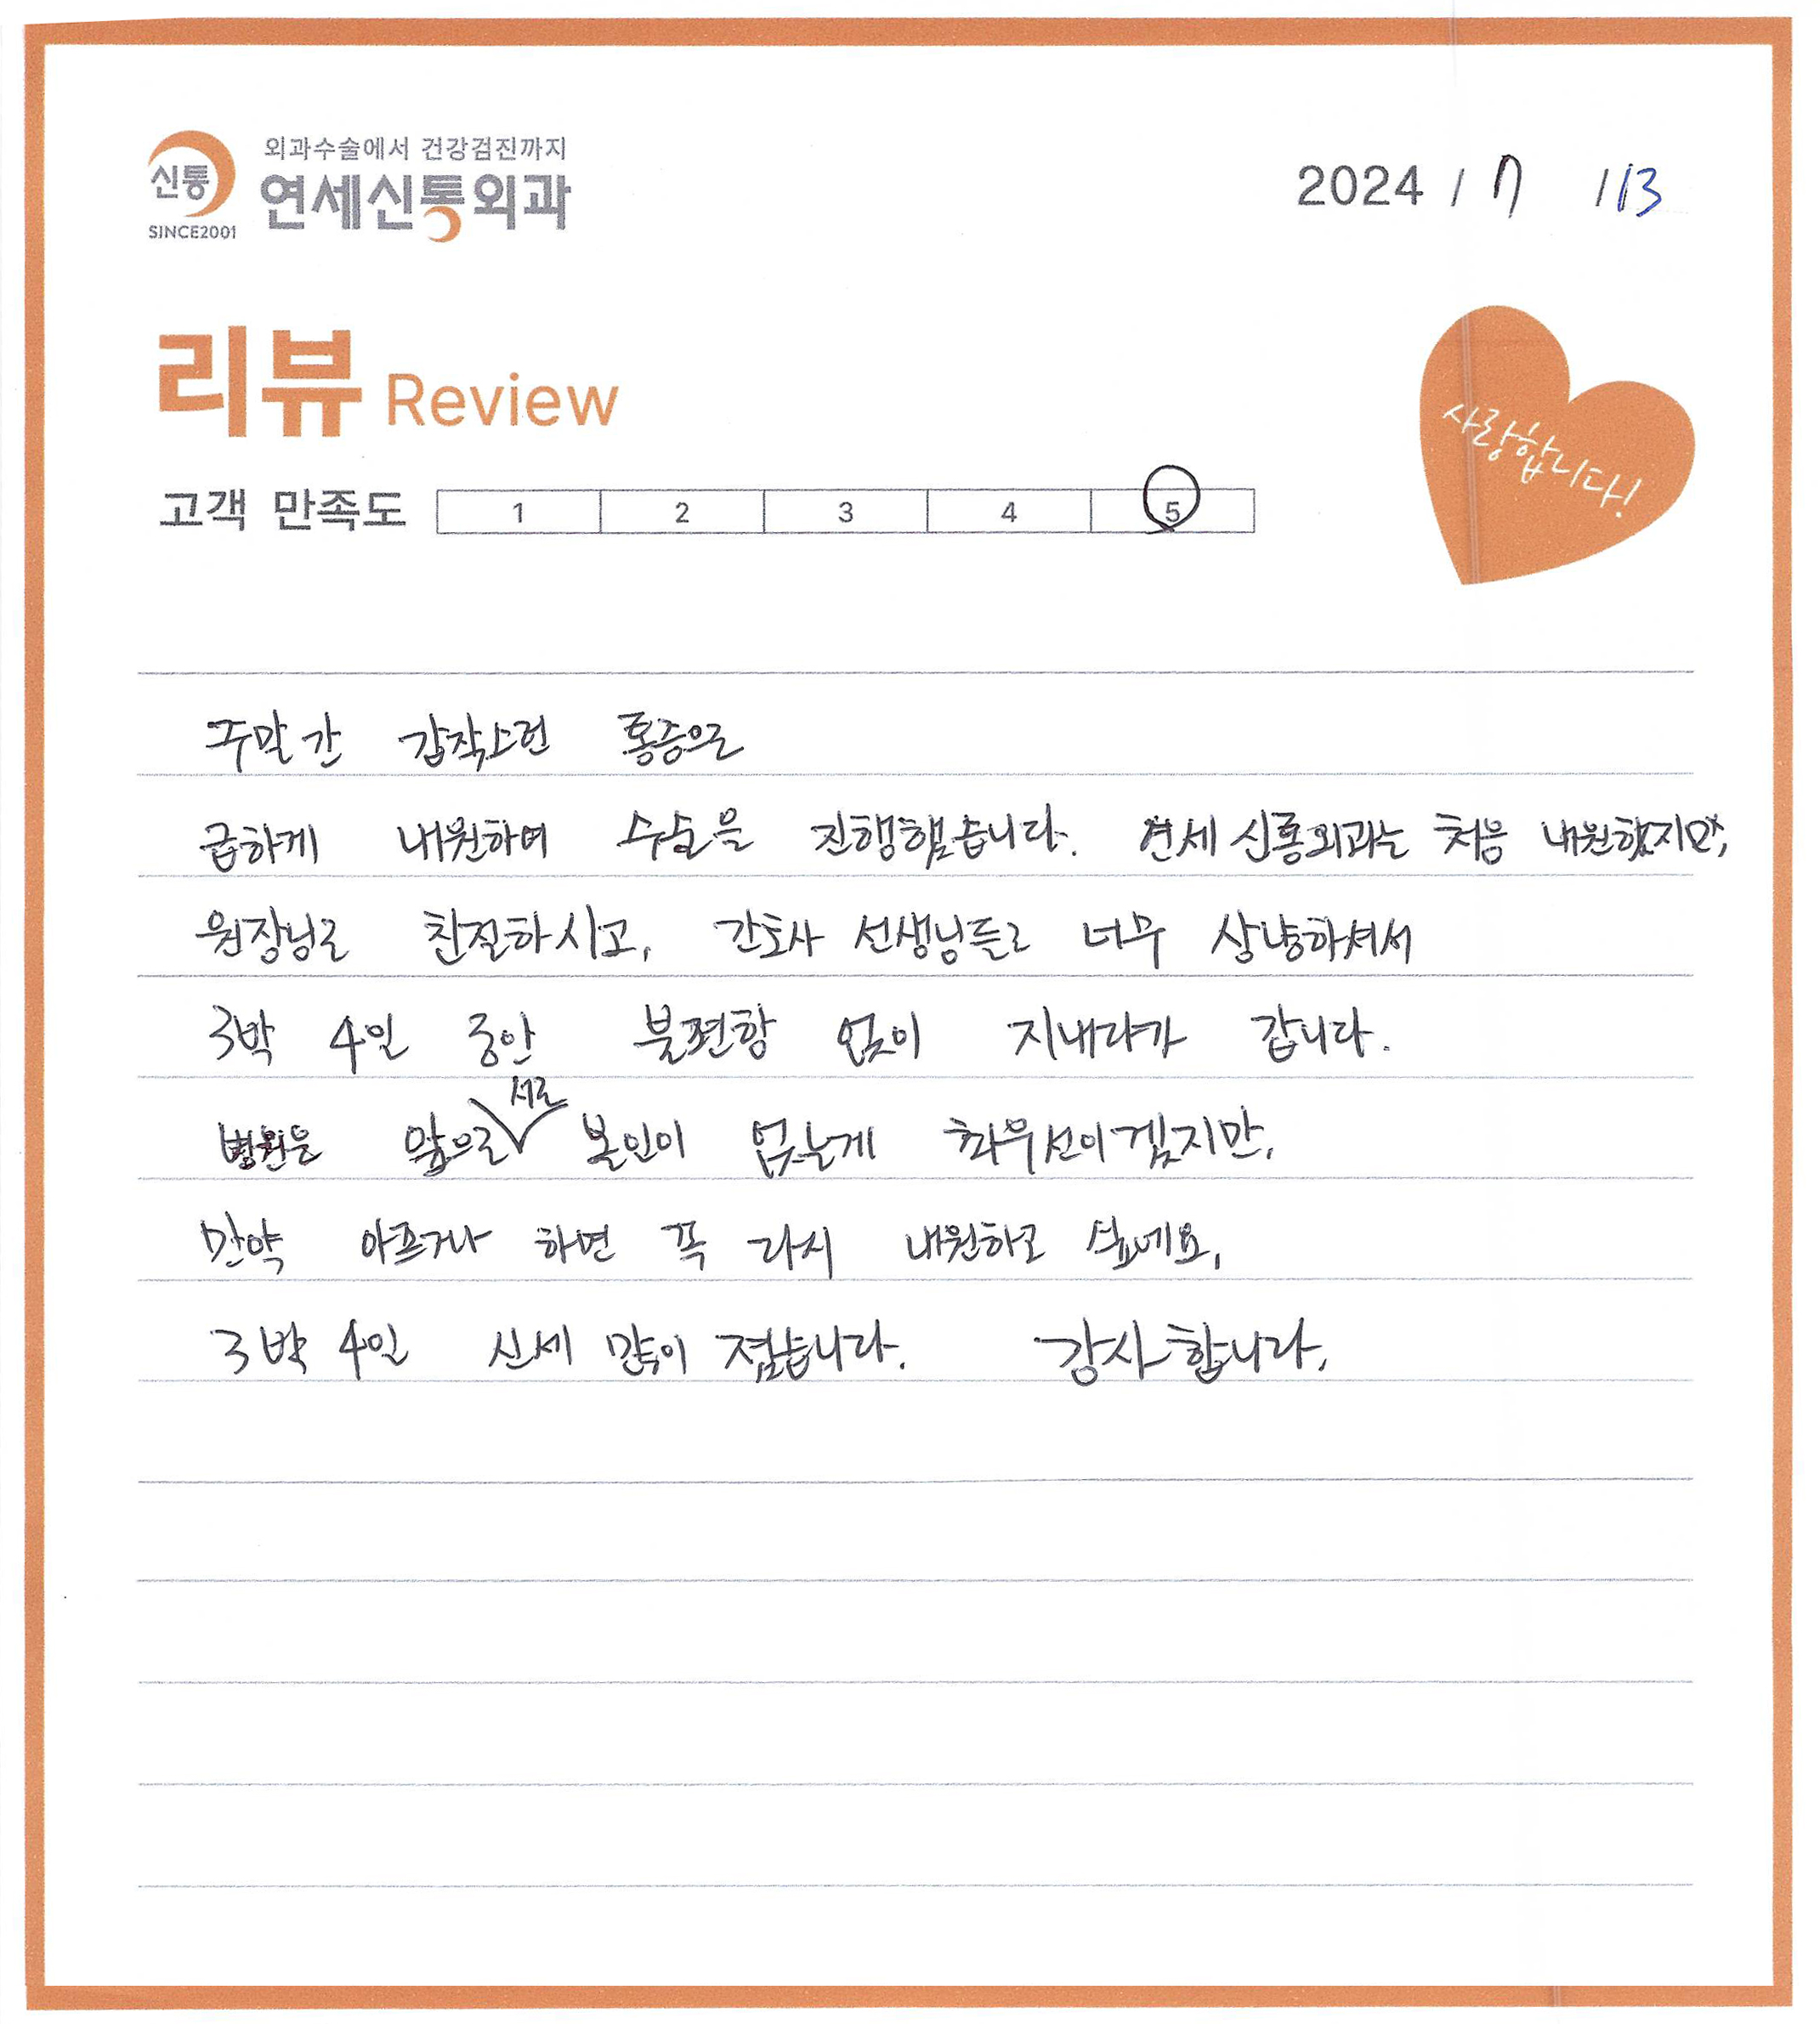 외과수술에서 건강검진까지
신통 연세신통외과
SINCE2001
2024 / 7 / 13
리뷰 Review
사랑합니다!
고객 만족도 1 2 3 4 5
주말간 갑작스런 통증으로
급하게 내원하여 수술을 진행했습니다. 연세 신통외과는 처음 내원했지만,
원장님도 친절하시고, 간호사 선생님들도 너무 상냥하셔서
3박 4일 동안 불편함 없이 지내다가 갑니다.
서로
병원은 앞으로 볼일이 없는게 최우선이겠지만,
만약 아프거나 하면 꼭 다시 내원하고 싶네요,
3박 4일 신세 많이 졌습니다. 감사합니다.